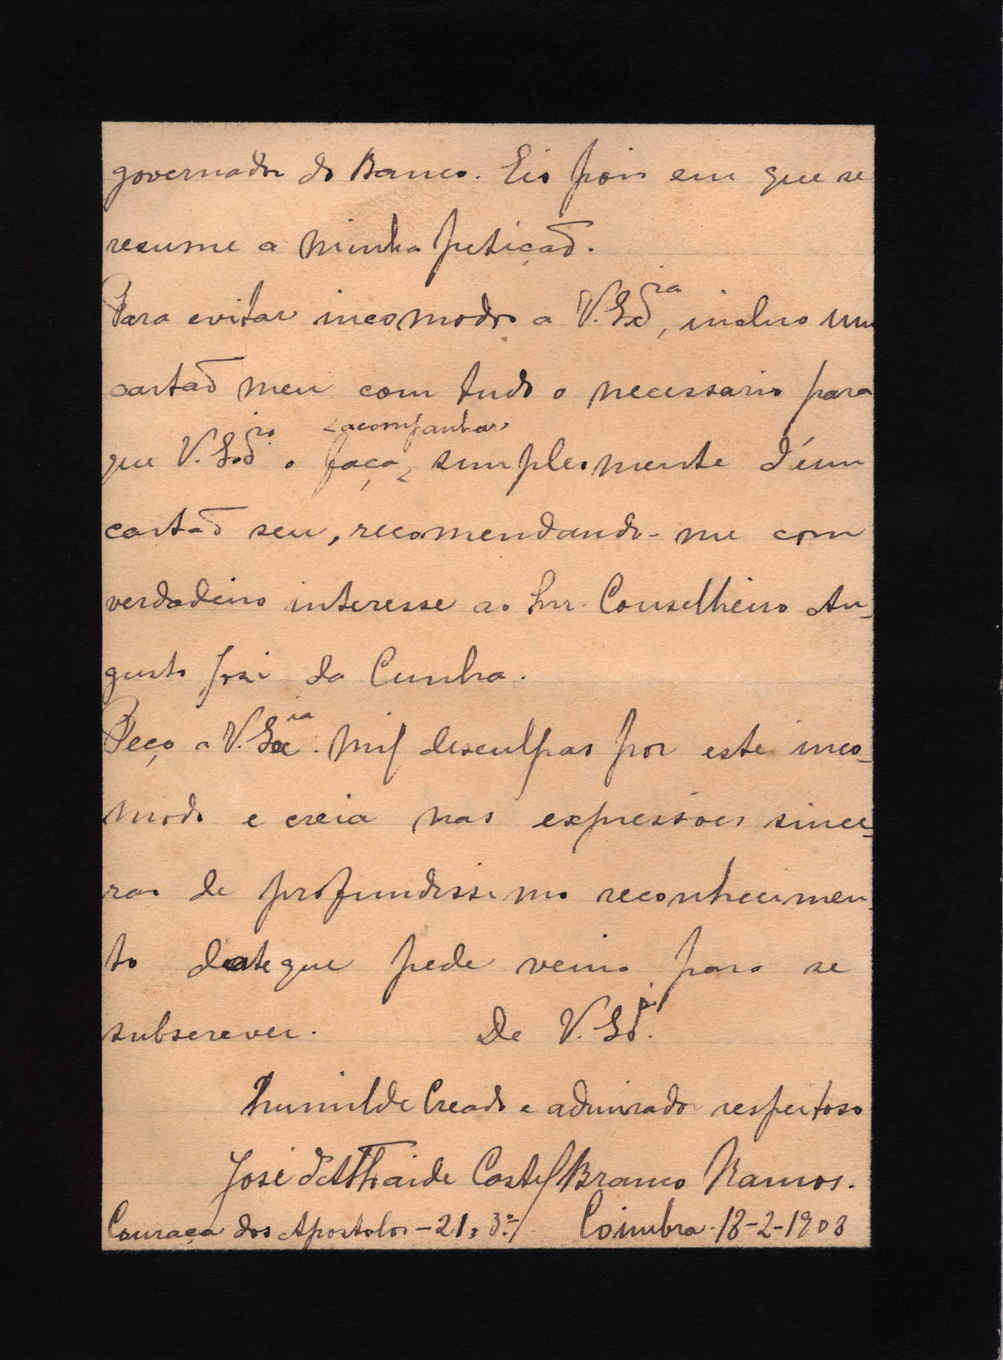 governador do Banco. Eis pois em que se
resume a minha petição.
Para evitar incomodo a V. Exª, incluo um
cartaõ meu com tudo o necessario para
que V. Exª o faça acompanhar, simplesmente d'um
cartaõ seu, recomendando-me com
verdadeiro interesse ao Snr. Conselheiro Au-
gusto José da Cunha.
Peço a V. Exia. mil desculpas por este inco-
modo e creia nas expressões since-
ras de profundissimo reconhecimen-
to deste que pede venia para se
subscrever. De V. Exª.
humilde Creado e admirador respeitoso
José d'Athaide Castel Branco Ramos.
Couraça dos Apostolos - 21, 3º- / Coimbra - 18-2-1903